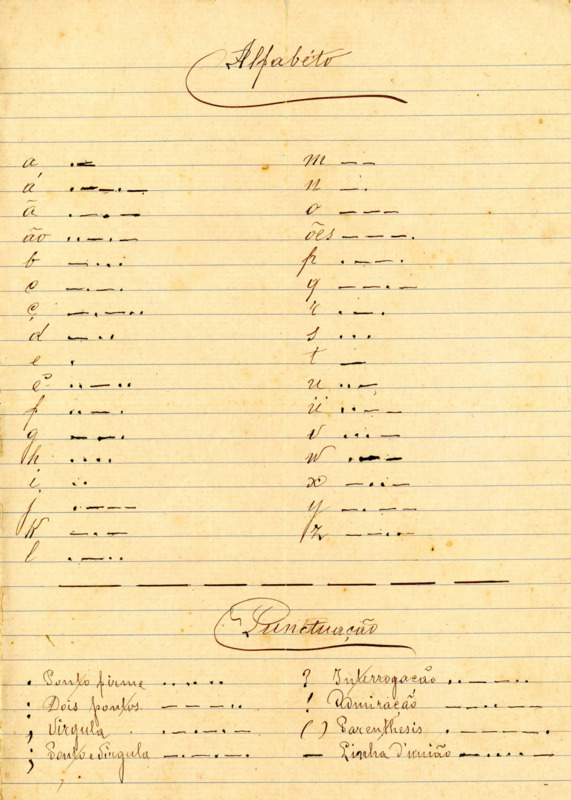 Alfabéto
a .-
á .--.-
ã .-.-
ão ..-.-
b -...
c -.-.
ç -.-..
d -..
e .
é ..-..
f ..-.
g --.
h ....
i ..
j .---
k -.-
l .-..
m --
n -.
o ---
ões ---.
p .--.
q --.-
r .-.
s ...
t -
u ..-
ü ..--
v ...-
w .--
x -..-
y -.--
z --..
Punctuação
. Ponto firme
: Dois pontos
, Virgula
; Ponto e Virgula
? Interrogação ..--..
! Admiração --..--
( ) Parenthesis
— Linha d'união